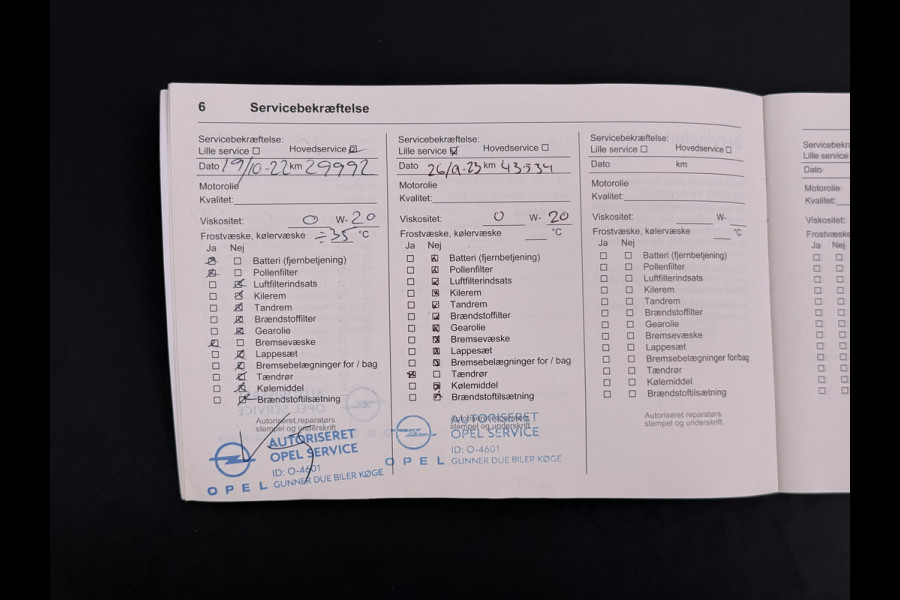 6 Servicebekræftelse
Servicebekræftelse:
Lille service ☐ Hovedservice ☒
Dato 19/10-22 km 29992
Motorolie
Kvalitet:
Viskositet: 0 W- 20
Frostvæske, kølervæske ÷35 °C
Ja Nej
☒ ☐ Batteri (fjernbetjening)
☒ ☐ Pollenfilter
☐ ☒ Luftfilterindsats
☐ ☒ Kilerem
☐ ☒ Tandrem
☐ ☒ Brændstoffilter
☐ ☒ Gearolie
☒ ☐ Bremsevæske
☐ ☒ Lappesæt
☐ ☒ Bremsebelægninger for / bag
☐ ☒ Tændrør
☐ ☒ Kølemiddel
☐ ☒ Brændstoftilsætning
Autoriseret reparatørs
stempel og underskrift
AUTORISERET
OPEL SERVICE
ID: O-4601
GUNNER DUE BILER KØGE
OPEL
Servicebekræftelse:
Lille service ☒ Hovedservice ☐
Dato 26/9-23 km 43534
Motorolie
Kvalitet:
Viskositet: 0 W- 20
Frostvæske, kølervæske °C
Ja Nej
☐ ☒ Batteri (fjernbetjening)
☐ ☒ Pollenfilter
☐ ☒ Luftfilterindsats
☐ ☒ Kilerem
☐ ☒ Tandrem
☐ ☒ Brændstoffilter
☐ ☒ Gearolie
☐ ☒ Bremsevæske
☐ ☒ Lappesæt
☐ ☒ Bremsebelægninger for / bag
☒ ☐ Tændrør
☐ ☒ Kølemiddel
☐ ☒ Brændstoftilsætning
Autoriseret reparatørs
stempel og underskrift
AUTORISERET
OPEL SERVICE
ID: O-4601
GUNNER DUE BILER KØGE
OPEL
Servicebekræftelse:
Lille service ☐ Hovedservice ☐
Dato km
Motorolie
Kvalitet:
Viskositet: W-
Frostvæske, kølervæske °C
Ja Nej
☐ ☐ Batteri (fjernbetjening)
☐ ☐ Pollenfilter
☐ ☐ Luftfilterindsats
☐ ☐ Kilerem
☐ ☐ Tandrem
☐ ☐ Brændstoffilter
☐ ☐ Gearolie
☐ ☐ Bremsevæske
☐ ☐ Lappesæt
☐ ☐ Bremsebelægninger for/bag
☐ ☐ Tændrør
☐ ☐ Kølemiddel
☐ ☐ Brændstoftilsætning
Autoriseret reparatørs
stempel og underskrift
Servicebekr
Lille service
Dato
Motorolie
Kvalitet:
Viskositet:
Frostvæske
Ja Nej